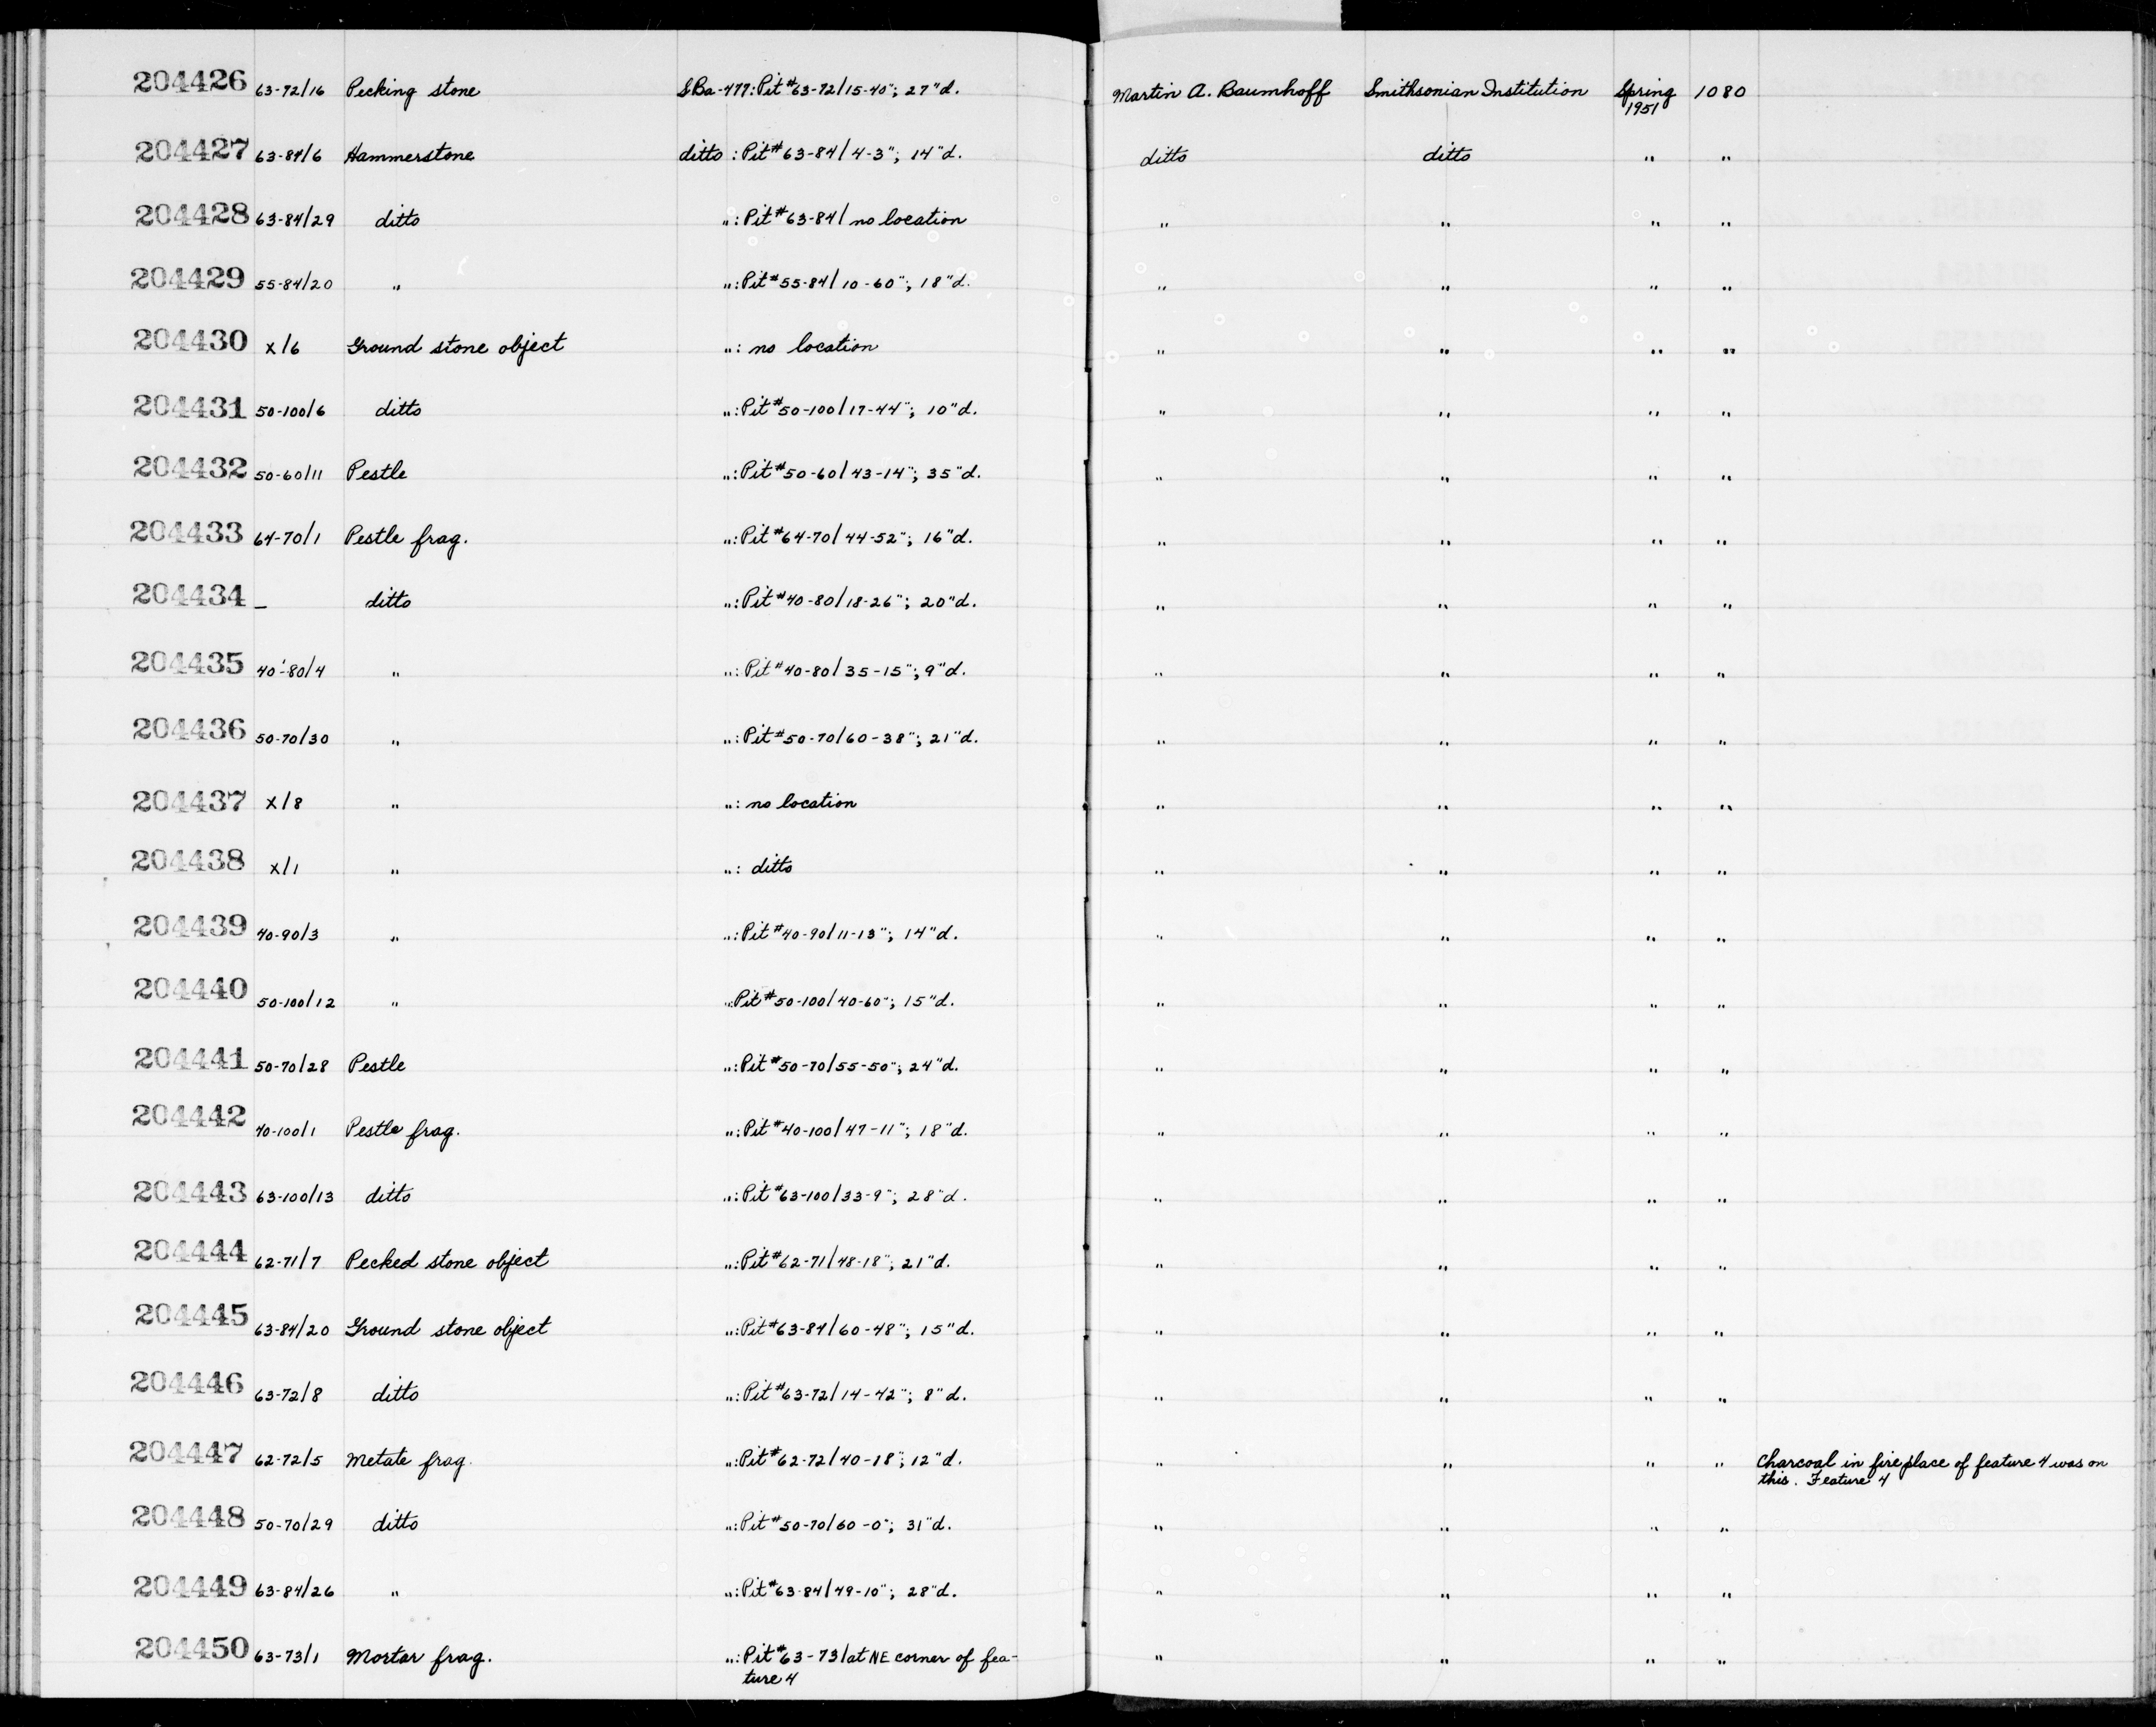 204426 63-72/16 Pecking stone SBa-477: Pit #63-72/15-40"; 27"d. Martin A. Baumhoff Smithsonian Institution Spring 1080
1951
204427 63-84/6 Hammerstone ditto : Pit #63-84/4-3"; 14"d. ditto ditto " "
204428 63-84/29 ditto ": Pit #63-84/ no location " " " "
204429 55-84/20 " ": Pit #55-84/10-60"; 18"d. " " " "
204430 X/6 Ground stone object ": no location " " " "
204431 50-100/6 ditto ": Pit #50-100/17-44"; 10"d. " " " "
204432 50-60/11 Pestle ": Pit #50-60/43-14"; 35"d. " " " "
204433 64-70/1 Pestle frag. ": Pit #64-70/44-52"; 16"d. " " " "
204434 – ditto ": Pit #40-80/18-26"; 20"d. " " " "
204435 40-80/4 " ": Pit #40-80/35-15"; 9"d. " " " "
204436 50-70/30 " ": Pit #50-70/60-38"; 21"d. " " " "
204437 X/8 " ": no location " " " "
204438 X/1 " ": ditto " " " "
204439 40-90/3 " ": Pit #40-90/11-13"; 14"d. " " " "
204440 50-100/12 " ": Pit #50-100/40-60"; 15"d. " " " "
204441 50-70/28 Pestle ": Pit #50-70/55-50"; 24"d. " " " "
204442 40-100/1 Pestle frag. ": Pit #40-100/47-11"; 18"d. " " " "
204443 63-100/13 ditto ": Pit #63-100/33-9"; 28"d. " " " "
204444 62-71/7 Pecked stone object ": Pit #62-71/48-18"; 21"d. " " " "
204445 63-84/20 Ground stone object ": Pit #63-84/60-48"; 15"d. " " " "
204446 63-72/8 ditto ": Pit #63-72/14-42"; 8"d. " " " "
204447 62-72/5 Metate frag. ": Pit #62-72/40-18"; 12"d. " " " " Charcoal in fireplace of feature 4 was on
this. Feature 4
204448 50-70/29 ditto ": Pit #50-70/60-0"; 31"d. " " " "
204449 63-84/26 " ": Pit #63-84/49-10"; 28"d. " " " "
204450 63-73/1 Mortar frag. ": Pit #63-73/at NE corner of fea- " " " "
ture 4